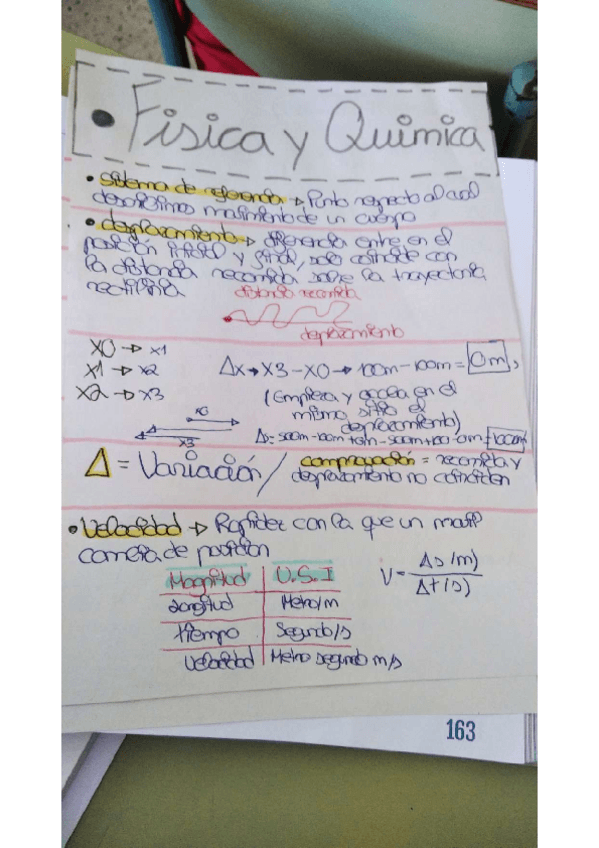 • Fisica y Quimica
• sistema de referencia → Punto respecto al cual
describimos movimiento de un cuerpo
• desplazamiento → diferencia entre en el
posición inicial y final, solo coincide con
la distancia recorrida sobre la trayectoria
rectilínia
distancia recorrida
desplazamiento
X0 → x1
x1 → x2
x2 → x3
Δx → X3 - X0 → 100m - 100m = 0m,
(Empieza y acaba en el
mismo sitio el
desplazamiento)
x0
x3
Δs = 500m-100m+
Δ = Variación /
comprovación = recorrida y
desplazamiento no coinciden
• Velocidad → Rapidez con la que un
cambia de posición
Magnitud U.S.I
Longitud Metro/m
tiempo Segundo/s
Velocidad Metro segundo m/s
V = Δs (m)
Δt (s)
163